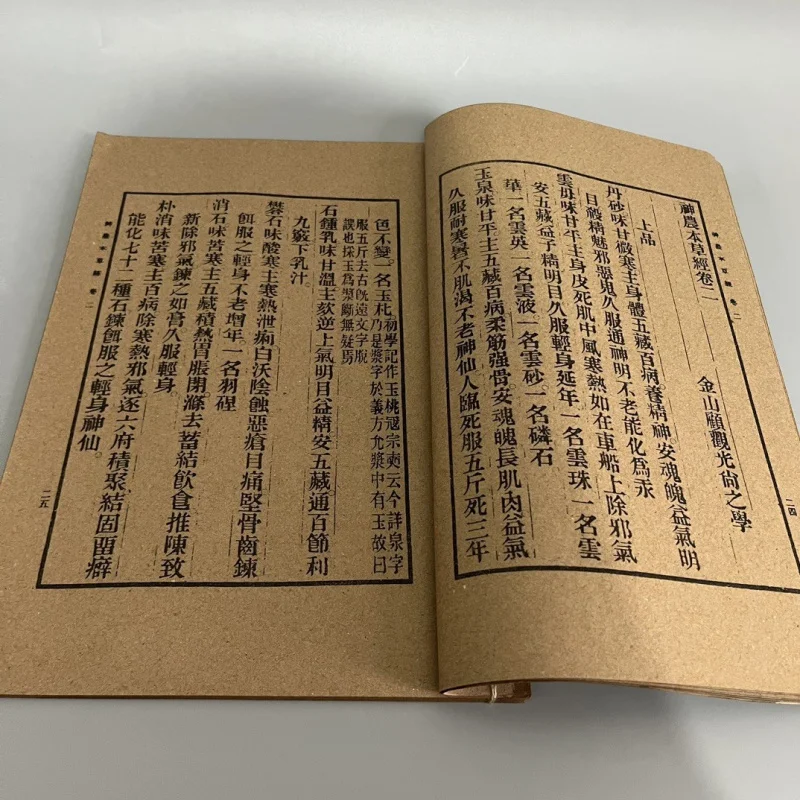 神農本草經 卷二
二四
神農本草經卷二
金山顧觀光尙之學
上品
丹砂味甘微寒主身體五藏百病養精神安魂魄益氣明
目殺精魅邪惡鬼久服通神明不老能化爲汞
雲毋味甘平主身皮死肌中風寒熱如在車船上除邪氣
安五藏益子精明目久服輕身延年一名雲珠一名雲
華一名雲英一名雲液一名雲砂一名磷石
玉泉味甘平主五藏百病柔筋强骨安魂魄長肌肉益氣
久服耐寒暑不肌渴不老神仙人臨死服五斤死三年
色不變一名玉札初學記作玉桃冠宗奭云今詳泉字
乃是漿字於義方允漿中有玉故曰
服五斤去古旣遠文字脫
誤也採玉爲漿斷無疑焉
石鍾乳味甘溫主欬逆上氣明目益精安五藏通百節利
九竅下乳汁
礬石味酸寒主寒熱泄痢白沃陰蝕惡瘡目痛堅骨齒鍊
餌服之輕身不老增年一名羽碮
消石味苦寒主五藏積熱胃脹閉滌去蓄結飮食推陳致
新除邪氣鍊之如膏久服輕身
朴消味苦寒主百病除寒熱邪氣逐六府積聚結固畱癖
能化七十二種石鍊餌服之輕身神仙。
神農本草經 卷二
二五